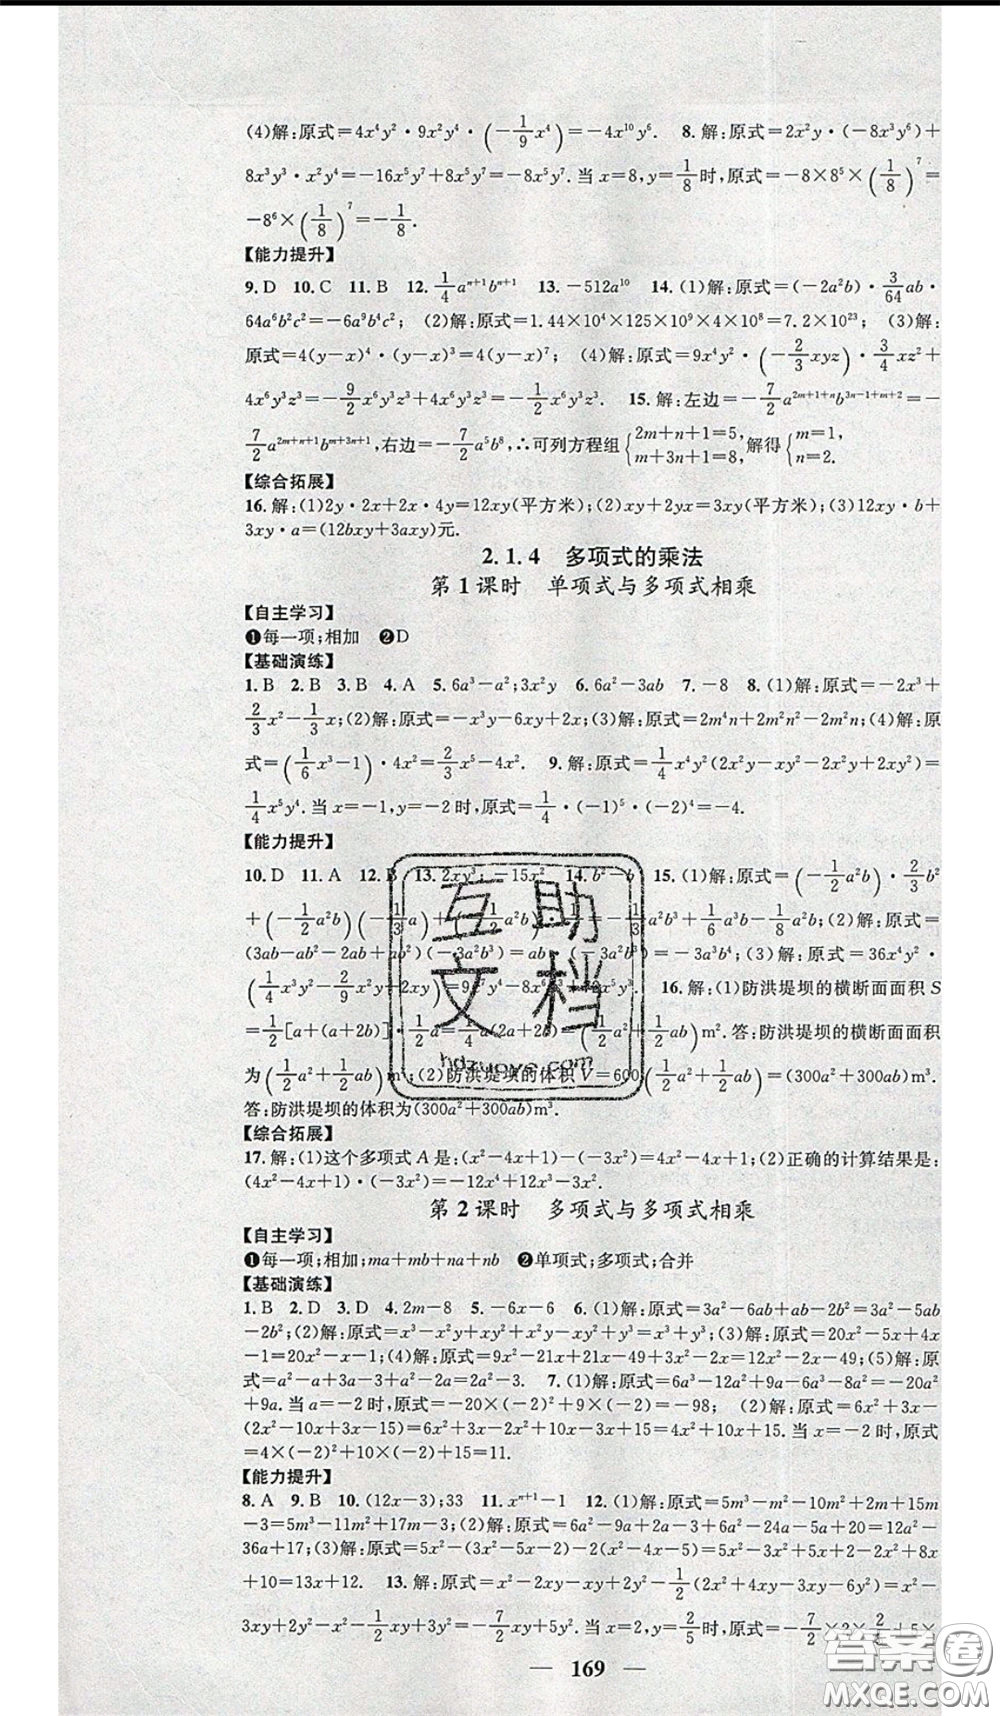 (4)解:原式=4x⁴y²·9x²y⁴·(-1/9x⁴)=-4x¹⁰y⁶. 8.解:原式=2x²y·(-8x³y⁶)+
8x³y³·x²y⁴=-16x⁵y⁷+8x⁵y⁷=-8x⁵y⁷.当x=8,y=1/8时,原式=-8×8⁵×(1/8)⁷=
-8⁶×(1/8)⁷=-1/8.
【能力提升】
9.D 10.C 11.B 12.1/4aⁿ⁺¹bⁿ⁺¹ 13.-512a¹⁰ 14.(1)解:原式=(-2a²b)·3/64ab·
64a⁶b²c²=-6a⁹b⁴c²; (2)解:原式=1.44×10⁴×125×10⁹×4×10⁸=7.2×10²³; (3)解:
原式=4(y-x)⁴·(y-x)³=4(y-x)⁷; (4)解:原式=9x⁴y²·(-2/3xyz)·3/4xz²+
4x⁶y³z³=-9/2x⁶y³z³+4x⁶y³z³=-1/2x⁶y³z³. 15.解:左边=-7/2a²ᵐ⁺¹⁺ⁿb³ⁿ⁻¹⁺ᵐ⁺²=-
7/2a²ᵐ⁺ⁿ⁺¹bᵐ⁺³ⁿ⁺¹,右边=-7/2a⁵b⁸,∴可列方程组{2m+n+1=5, m+3n+1=8,解得{m=1, n=2.
【综合拓展】
16.解:(1)2y·2x+2x·4y=12xy(平方米);(2)xy+2yx=3xy(平方米);(3)12xy·b+
3xy·a=(12bxy+3axy)元.
2.1.4 多项式的乘法
第1课时 单项式与多项式相乘
【自主学习】
❶每一项;相加 ❷D
【基础演练】
1.B 2.B 3.B 4.A 5.6a³-a²;3x²y 6.6a²-3ab 7.-8 8.(1)解:原式=-2x³+
2/3x²-1/3x;(2)解:原式=-x³y-6xy+2x;(3)解:原式=2m⁴n+2m²n²-2m²n;(4)解:原
式=(1/6x³-1)·4x²=2/3x⁵-4x². 9.解:原式=1/4x⁴y²(2x²y-xy²-2x²y+2xy²)=
1/4x⁵y⁴.当x=-1,y=-2时,原式=1/4·(-1)⁵·(-2)⁴=-4.
【能力提升】
10.D 11.A 12.B 13.2xy³;-15x² 14.b²-b 15.(1)解:原式=(-1/2a²b)·2/3b²
+(-1/2a²b)(-1/3a)+(-1/2a²b)·=-1/3a²b³+1/6a³b-1/8a²b;(2)解:原式=
(3ab-ab²-2ab+ab²)(-3a²b²)=ab·(-3a²b²)=-3a³b³;(3)解:原式=36x⁴y²·
(1/4x³y²-2/9x²y+2xy)=9x⁷y⁴-8x⁶y³+72x⁵y³. 16.解:(1)防洪堤坝的横断面面积S
=1/2[a+(a+2b)]·1/2a=1/4a(2a+2b)=(1/2a²+1/2ab)m².答:防洪堤坝的横断面面积
为(1/2a²+1/2ab)m²;(2)防洪堤坝的体积V=600(1/2a²+1/2ab)=(300a²+300ab)m³.
答:防洪堤坝的体积为(300a²+300ab)m³.
【综合拓展】
17.解:(1)这个多项式A是:(x²-4x+1)-(-3x²)=4x²-4x+1;(2)正确的计算结果是:
(4x²-4x+1)·(-3x²)=-12x⁴+12x³-3x².
第2课时 多项式与多项式相乘
【自主学习】
❶每一项;相加;ma+mb+na+nb ❷单项式;多项式;合并
【基础演练】
1.B 2.D 3.D 4.2m-8 5.-6x-6 6.(1)解:原式=3a²-6ab+ab-2b²=3a²-5ab
-2b²;(2)解:原式=x³-x²y+xy²+x²y-xy²+y³=x³+y³;(3)解:原式=20x²-5x+4x
-1=20x²-x-1;(4)解:原式=9x²-21x+21x-49-7x²-2x=2x²-2x-49;(5)解:原
式=a²-a-3a+3-a²+4-2a=2a²-3. 7.(1)解:原式=6a³-12a²+9a-6a³-8a²=-20a²
+9a.当a=-2时,原式=-20×(-2)²+9×(-2)=-98; (2)解:原式=6x²+3x-
(2x²-10x+3x-15)=6x²+3x-2x²+10x-3x+15=4x²+10x+15.当x=-2时,原式
=4×(-2)²+10×(-2)+15=11.
【能力提升】
8.A 9.B 10.(12x-3);33 11.xⁿ⁺¹-1 12.(1)解:原式=5m³-m²-10m²+2m+15m
-3=5m³-11m²+17m-3; (2)解:原式=6a²-9a+2a-3-6(a²-5a+4)=-12a²-
36a+17;(3)解:原式=5x²-(3x²-5x-2)-2(x²-4x-5)=5x²-3x²+5x+2-2x²+8x
+10=13x+12. 13.解:原式=x²-2xy-xy+2y²-1/2(2x²+4xy-3xy-6y²)=x²-
3xy+2y²-x²-1/2xy+3y²=-7/2xy+5y².当x=2,y=2/5时,原式=-7/2×2×2/5+5×
169
互助
文档
hdzuoye.com
答案圈
MXQE.COM